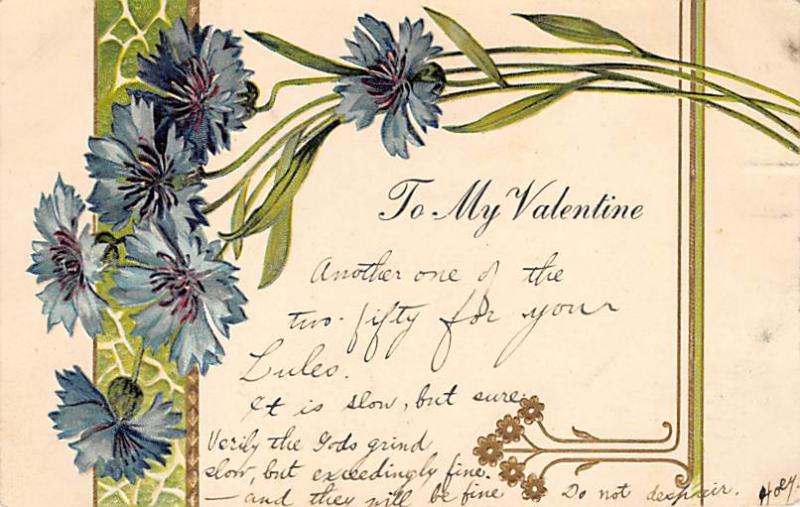 To My Valentine
Another one of the
two-fifty for your
Lules.
It is slow, but sure.
Verily the Gods grind
slow, but exceedingly fine.
— and they will be fine Do not despair.